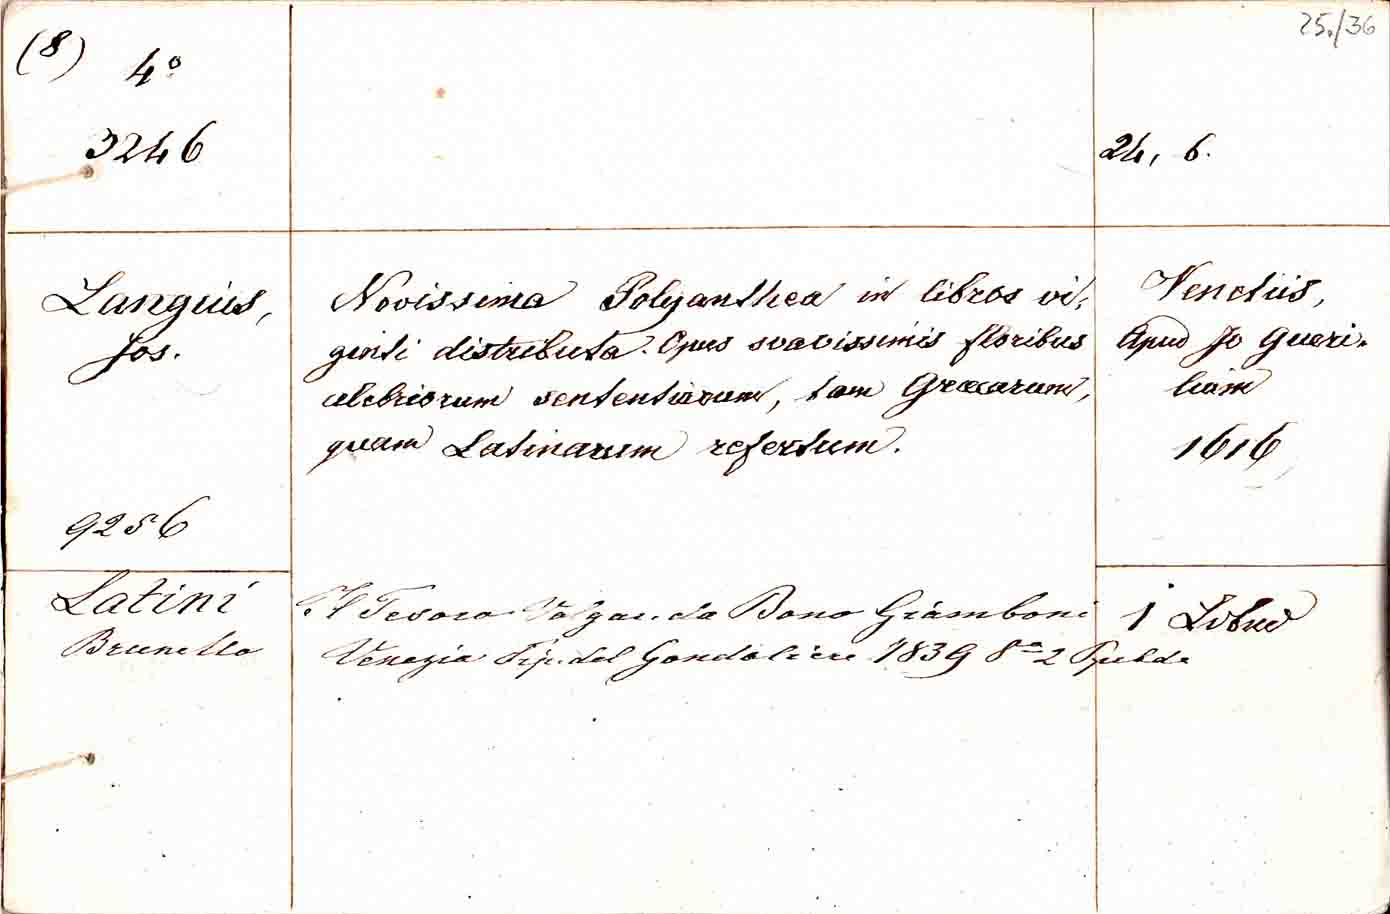 25./36
(8) 4º
3246
24, 6.
Languis,
Jos.
Novissima Polyanthea in libros vi,
ginti distributa. Opus suavissimis floribus
celebriorum sententiarum, tam Græcarum,
quam Latinarum refertum.
Venetiis,
Apud Jo Gueri-
lium
1616
9256
Latini
Brunetto
Il Tesoro Volgar. da Bono Giamboni
Venezia Tip. del Gondoliere 1839 8º 2
1